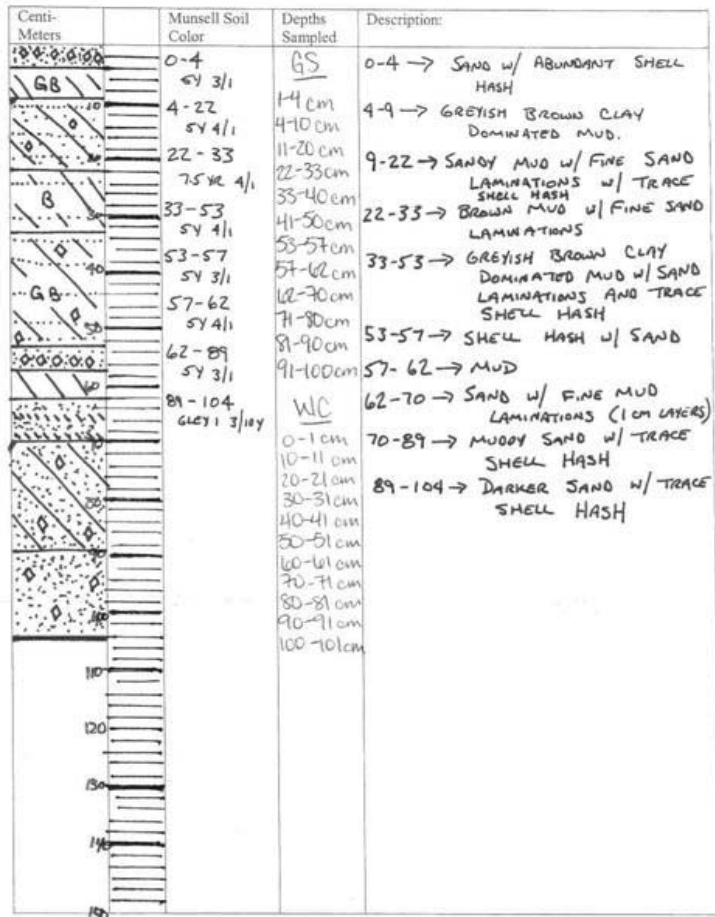 Centi-
Meters
Munsell Soil
Color
Depths
Sampled
Description:
GB
10
20
B
30
40
GB
50
60
70
80
90
100
110
120
130
140
150
0-4
5Y 3/1
4-22
5Y 4/1
22-33
7.5 YR 4/1
33-53
5Y 4/1
53-57
5Y 3/1
57-62
5Y 4/1
62-89
5Y 3/1
89-104
GLEY 1 3/10Y
GS
1-4 cm
4-10 cm
11-20 cm
22-33cm
33-40cm
41-50cm
53-57cm
57-62cm
62-70cm
71-80cm
81-90cm
91-100cm
WC
0-1 cm
10-11 cm
20-21 cm
30-31cm
40-41 cm
50-51 cm
60-61 cm
70-71 cm
80-81 cm
90-91cm
100-101cm
0-4 → SAND W/ ABUNDANT SHELL
HASH
4-9 → GREYISH BROWN CLAY
DOMINATED MUD.
9-22 → SANDY MUD W/ FINE SAND
LAMINATIONS W/ TRACE
SHELL HASH
22-33 → BROWN MUD W/ FINE SAND
LAMINATIONS
33-53 → GREYISH BROWN CLAY
DOMINATED MUD W/ SAND
LAMINATIONS AND TRACE
SHELL HASH
53-57 → SHELL HASH W/ SAND
57-62 → MUD
62-70 → SAND W/ FINE MUD
LAMINATIONS (1 CM LAYERS)
70-89 → MUDDY SAND W/ TRACE
SHELL HASH
89-104 → DARKER SAND W/ TRACE
SHELL HASH